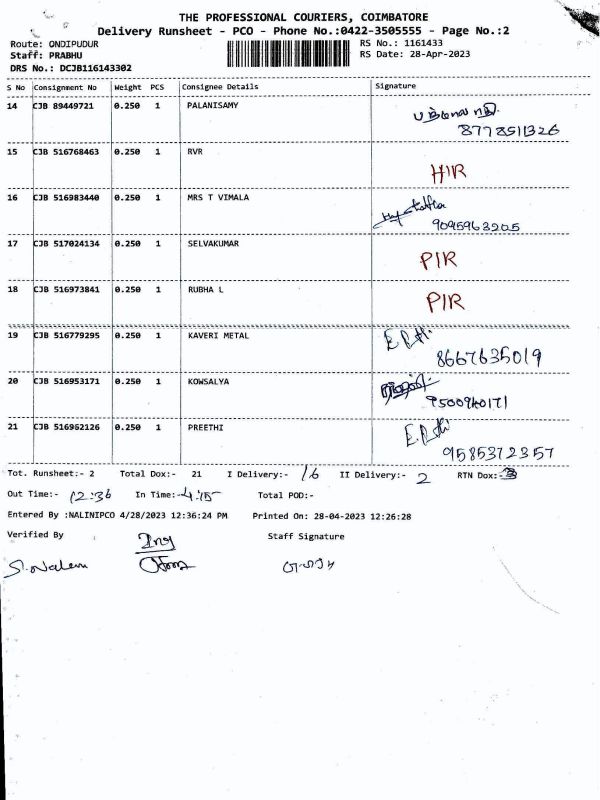 THE PROFESSIONAL COURIERS, COIMBATORE
Delivery Runsheet - PCO - Phone No.:0422-3505555 - Page No.:2
Route: ONDIPUDUR RS No.: 1161433
Staff: PRABHU RS Date: 28-Apr-2023
DRS No.: DCJB116143302
S No Consignment No Weight PCS Consignee Details Signature
14 CJB 89449721 0.250 1 PALANISAMY
8778511326
15 CJB 516768463 0.250 1 RVR HIR
16 CJB 516983440 0.250 1 MRS T VIMALA
9095963205
17 CJB 517024134 0.250 1 SELVAKUMAR PIR
18 CJB 516973841 0.250 1 RUBHA L PIR
19 CJB 516779295 0.250 1 KAVERI METAL
8667635019
20 CJB 516953171 0.250 1 KOWSALYA
9500940171
21 CJB 516962126 0.250 1 PREETHI
9585372357
Tot. Runsheet:- 2 Total Dox:- 21 I Delivery:- 16 II Delivery:- 2 RTN Dox:- 3
Out Time:- 12:36 In Time:- 4:15 Total POD:-
Entered By :NALINIPCO 4/28/2023 12:36:24 PM Printed On: 28-04-2023 12:26:28
Verified By Staff Signature